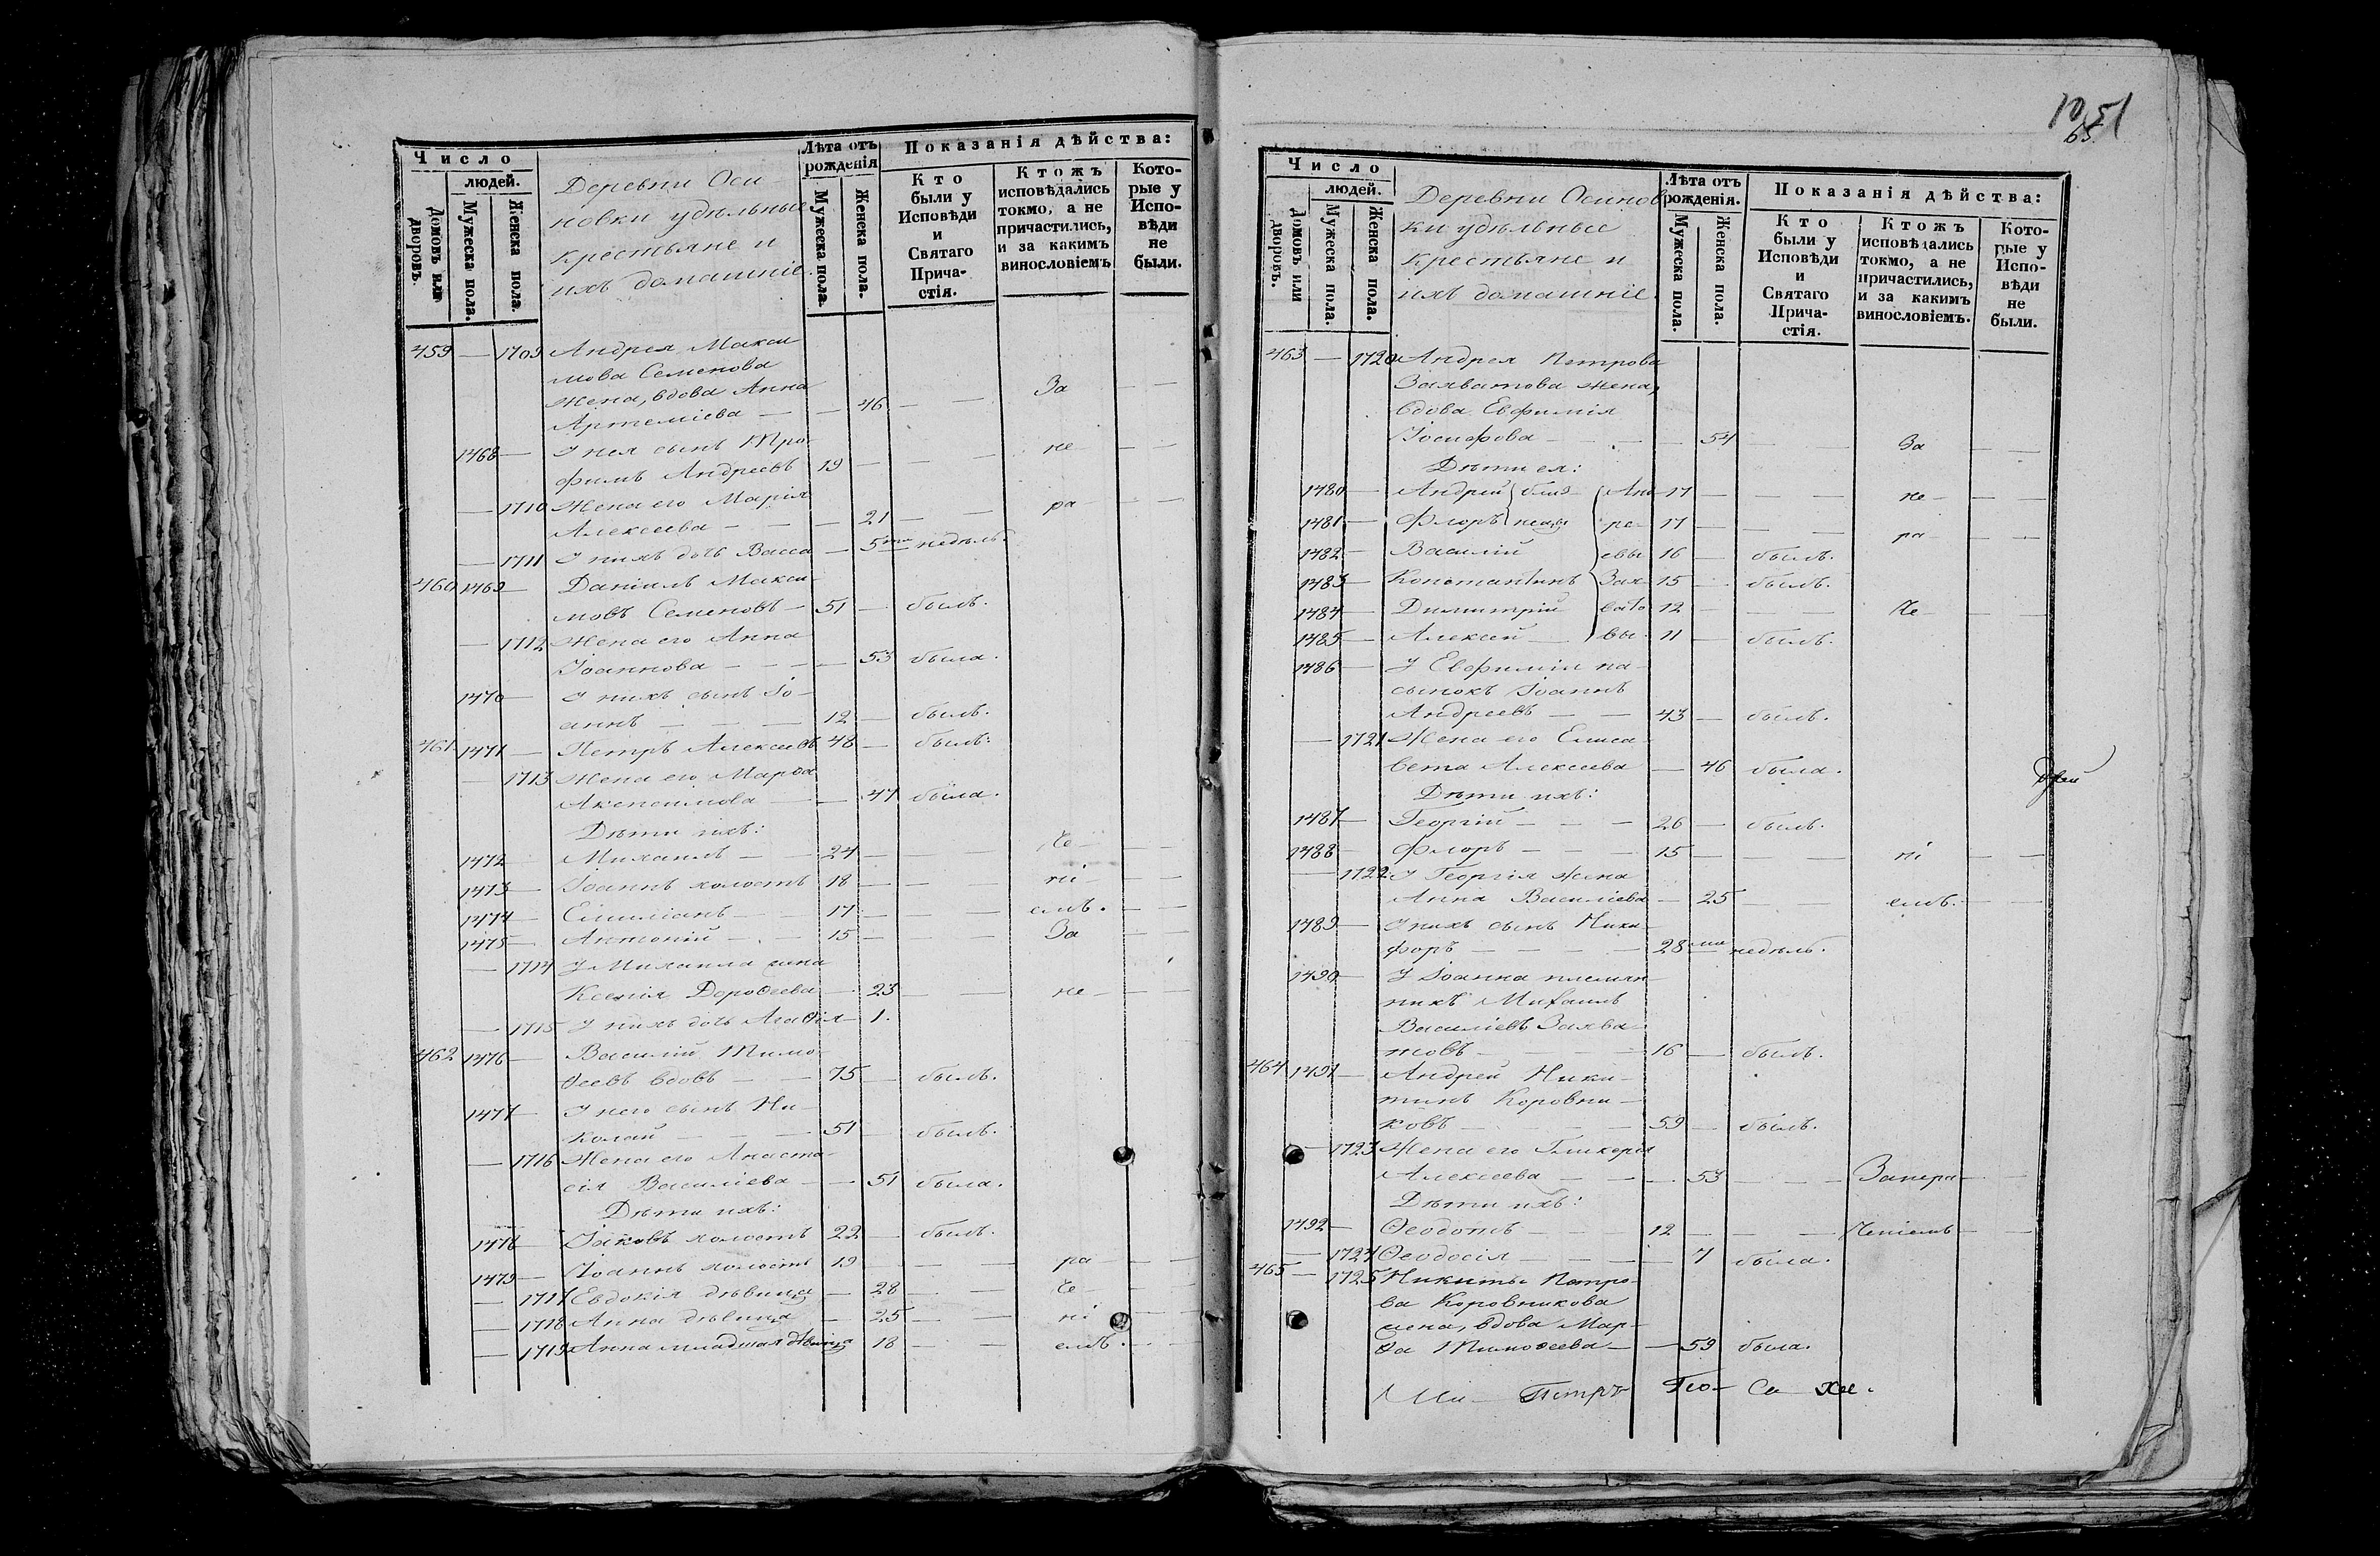 Число
людей.
Домовъ или дворовъ.
Мужеска пола.
Женска пола.
Деревни Оси-
новки удѣльные
крестьяне и
ихъ домашніе.
Лѣта отъ рожденія
Мужеска пола.
Женска пола.
Показанія дѣйства:
Кто были у Исповѣди и Святаго Прича-стія.
Ктожъ исповѣдались токмо, а не причастились, и за какимъ винословіемъ
Кото-рые у Испо-вѣди не были.
459 — 1709 Андрея Макси-
мова Семенова
жена, вдова Анна За — —
Артеміева — — 46 — —
1468 — У нея сынъ Тро- не — —
фимъ Андреевъ 19 — — —
— 1710 Жена его Марія ра — —
Алексеева — — — 21 — —
— 1711 У нихъ дочь Васса — 5ти недѣль.
460 1469 — Даніилъ Макси-
мовъ Семеновъ — 51 — былъ.
— 1712 Жена его Анна
Іоаннова — — — 53 была.
1470 — У нихъ сынъ Іо-
аннъ — — — 12 — былъ.
461 1471 — Петръ Алексѣевъ 48 — былъ.
— 1713 Жена его Марѳа
Акепсимова — — 47 была.
Дѣти ихъ:
1472 Михаилъ — — 24 — — Че — —
1473 — Іоаннъ холостъ 18 — — — ні — —
1474 — Емиліанъ — — 17 — — емъ. — —
1475 — Антоній — — 15 — — За — —
— 1714 У Михаила жена
Ксенія Дороѳеева — 23 — — не — —
— 1715 У нихъ дочь Агаѳія — 1.
462 1476 — Василій Тимо-
ѳеевъ вдовъ — — 75 — былъ.
1477 — У него сынъ Ни-
колай — — — 51 — былъ.
— 1716 Жена его Анаста-
сія Василіева — — 51 была.
Дѣти ихъ:
1478 Іаковъ холостъ 22 — былъ.
1479 — Іоаннъ холостъ 19 — — — ра — —
— 1717 Евдокія дѣвица — 28 — — Че —
— 1718 Анна дѣвица — 25 — — ні — —
— 1719 Анна младшая дѣвица 18 — — емъ. — —
65
Число
людей.
Домовъ или дворовъ.
Мужеска пола.
Женска пола.
Деревни Осинов-
ки удѣльные
крестьяне и
ихъ домашніе.
Лѣта отъ рожденія.
Мужеска пола.
Женска пола.
Показанія дѣйства:
Кто были у Исповѣди и Святаго Прича-стія.
Ктожъ исповѣдались токмо, а не причастились, и за какимъ винословіемъ.
Кото-рые у Испо-вѣди не были.
463 — 1720 Андрея Петрова
Захватова жена,
вдова Евфимія
Іосифова — — — 54 — — За — —
Дѣти ея:
1480 — Андрей близ- Анд- 17 — — — не — —
1481 — Флоръ нецы ре- 17 — — — ра — —
1482 — Василій евы 16 — былъ.
1483 — Константинъ Зах- 15 — былъ.
1484 — Димитрій вато 12 — — — Че — —
1485 — Алексей — вы. 11 — былъ.
1486 — У Евфиміи па-
сынокъ Іоаннъ
Андреевъ — — 43 — былъ.
— 1721 Жена его Елиса-
вета Алексеева — 46 была.
Дѣти ихъ:
1487 — Георгій — — — 26 — былъ.
1488 — Флоръ — — — 15 — — — ні — —
— 1722 У Георгія жена
Анна Василіева — 25 — — емъ. — —
1489 — У нихъ сынъ Ники-
форъ — — — — 28ми недѣль.
1490 — У Іоанна племян-
никъ Михаилъ
Василіевъ Захва-
товъ — — — — 16 — былъ.
464 1491 — Андрей Ники-
тинъ Коровни-
ковъ — — — — 59 — былъ.
— 1723 Жена его Гликерія
Алексеева — — — 53 — — — Запира — —
Дѣти ихъ:
1492 — Ѳеодотъ — — — 12 — — — Ченіемъ — —
— 1724 Ѳеодосія — — — 7 была.
465 — 1725 Никиты Петро-
ва Коровникова
жена, вдова Мар-
ѳа Тимоѳеева — — 59 была.
Петръ